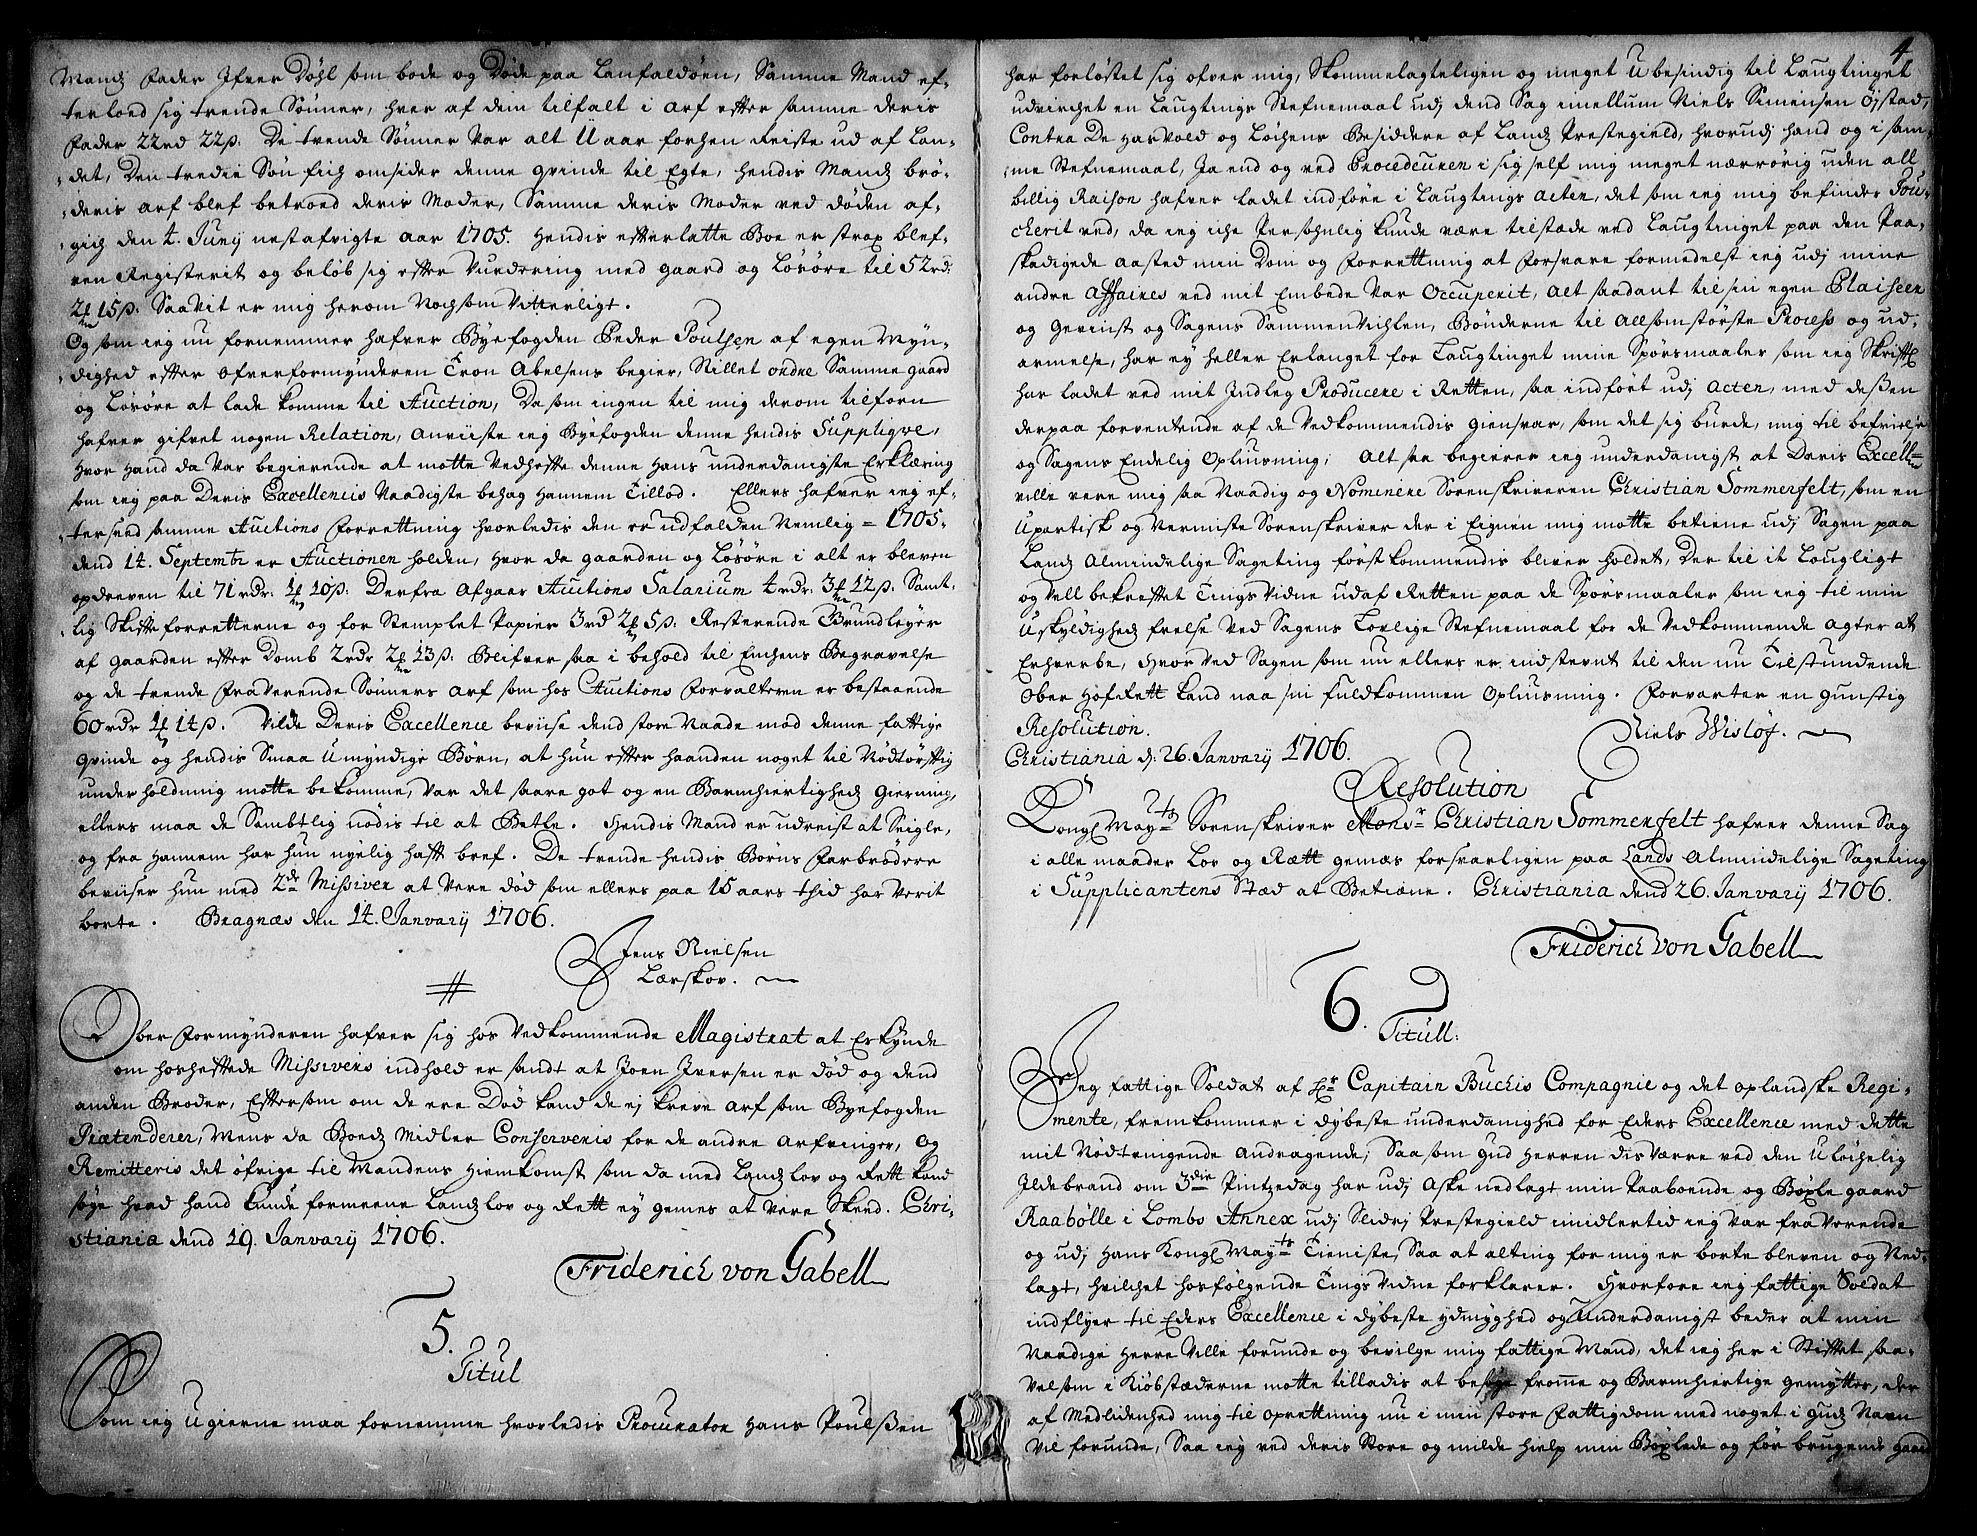 Mandz Fader Ifver Døhl som bode og Døde paa Lanfaldøen, Samme Mand ef-
terloed sig trende Sønner, hver af dem tilfalt i Arf efter samme deris
Fader 22rd 22ß. De trende Sønner var alt 11 aar forhen Reiste ud af Lan-
det, Den tredie Søn fich omsider denne qvinde til Egte, hendis Mandz brø-
deris Arf blef betroed deris Moder, Samme deris Moder ved døden af-
gich den 4. Junij nestafvigte Aar 1705. Hendis efterlatte Boe er strax blef-
ven Registerit og beløb sig efter Vurdering med gaard og Løsøre til 52rd:
2 15ß: Saavit er mig herom Nochsom Vitterligt.
Og som ieg nu fornemmer hafver Byefogden Peder Poulsen af egen Myn-
dighed efter Ofverformynderen Tron Abelsens begier, Stillet ordre Samme gaard
og Løsøre at lade komme til Auction, Da som ingen til mig derom tilforn
hafver gifvet nogen Relation, Anviiste ieg Byefogden denne hendis Suppliqve,
Hvor Hand da var begierende at motte Vedhefte denne Hans underdanigste Erklæring
som ieg paa Deris Excellencis Naadigste behag Hannem Tillod. Ellers hafver ieg ef-
terseed samme Auctions Forretning hvorledis den er udfalden Nemlig = 1705.
dend 14. Septembr er Auctionen holden, Hvor da gaarden og Løsøre i alt er bleven
opdreven til 71 rdr: 1 10ß: Derfra Afgaar Auctions Salarium 4 rdr: 3 12ß: Samt-
lig Skifteforretterne og for Stemplet Papier 3rd 2 5ß: Resterende Grundleyer
af gaarden efter Domb 2rdr 2 13ß: Blifver saa i behold til Enchens Begravelse
og de trende Fraverende Sønners Arf som hos Auctions Forvalteren er bestaaende
60 rdr 1 14ß. Vilde Deris Excellence beviise dend store Naade mod denne fattige
qvinde og hendis Smaa Umyndige Børn, at hun efter haanden noget til Nødtørftig
underholdning motte bekomme, var det saare got og en Barmhiertighedz Gierning,
ellers maa de Sambtlig nødis til at Betle. Hendis Mand er udreist at Seigle,
og fra Hannem har hun nyelig haft bref. De trende hendis Børns Farbrødere
beviiser hun med 2de Missiver at vere død som ellers paa 15 aars thid har verit
borte. Bragnæs den 14. Januarij 1706.
Jens Nielsen
Lærskov.
Ober Formynderen hafver sig hos Vedkommende Magistrat at Erkynde
om hosheftede Missivers indhold er sandt at Joen Iversen er død og dend
anden Broder, Eftersom om de ere Død kand de ej kreve Arf som Byefogden
Prætenderer, Mens da Boedz Midler Conserveris for de andre Arfvinger, Og
Remitteris det øfrige til Mandens Hiemkomst som da med Landz Lov og Rett kand
søge hvad hand kunde formeene Landz Lov og Rett ey gemes at vere Skeed. Chri-
stiania dend 19. Januarij 1706.
Friderich von Gabell
5.
Titul
Som ieg Ugierne maa fornemme hvorledis Procurator Hans Poulßen
4
har forløstet sig ofver mig, Skammelagteligen og meget Ubesindig til Laugtinget
udvirchet en Laugtings Stefnemaal udj dend Sag imellum Niels Simensen Øjstad,
Contra De Hasvold og Løchens Besiddere af Landz Prestegield, hvorudj hand og i sam-
me Stefnemaal, Ja end og ved Proceduren i sig self mig meget nærrørig uden all
billig Raison hafver ladet indføre i Laugtings Acten, det som ieg mig befinder Tou-
cherit ved, da ieg iche Persohnlig kunde være tilstæde ved Laugtinget paa den Paa-
skadigede Aasted min Dom og Forrettning at forsvare formedelst ieg udj mine
andre Affaires ved mit Embede var Occuperit, alt saadant til sin egen Plaiseer
og Gevinst og Sagens Sammenvichlen, Bønderne til allsomstørste Process og ud-
armelse, har ey heller Erlanget for Laugtinget mine Spørsmaaler som ieg Skriftl
har ladet ved mit Indleg Producere i Retten, saa indført udj Acten, med deßen
derpaa forventende af de Vedkommendis giensvar, som det sig burde, mig til befrielse
og Sagens Endelig Opliusning; Alt saa begierer ieg underdanigst at Deris Excell
ville vere mig saa Naadig og Nominere Sorenskriveren Christian Sommerfelt, som en
Upartisk og Nermiste Sorenskriver der i Eignen mig motte betiene udj Sagen paa
Landz Almindelige Sageting først kommendis bliver holdet, Der til it Lougligt
og vell bekreftet Tings Vidne udaf Retten paa de Spørsmaaler som ieg til min
Uskyldighedz frelse ved Sagens Lovlige Stefnemaal for de Vedkommende agter at
Erhverbe, Hvorved Sagen som nu ellers er indstevnt til den nu Tilstundende
Ober HofRett kand naa sin fuldkommen Opliusning. Forvarter en gunstig
Resolution.
Niels Wisløf.
Christiania d: 26. Januarij 1706.
Resolution
Kongl May:ts Sorenskriver Monsr Christian Sommerfelt hafver denne Sag
i alle maader Lov og Rætt gemæs forsvarligen paa Lands Almindelige Sageting
i Supplicantens Stæd at Betiene. Christiania dend 26. Januarij 1706.
Friderich von Gabell
6.
Titull:
Jeg fattige Soldat af Hr Capitain Buchis Compagnie og det oplandske Regi-
mente, fremkommer i dybeste underdanighed for Eders Excellence med dette
mit Nødtvingende Andragende; Saasom Gud Herren disværre ved den Uløchelig
Ildebrand om 3die Pintzedag har udj Aske nedlagt min Paaboende og Bøxle gaard
Raabølle i Lombs Annex udj Slidrj Prestegield imidlertid ieg var fraverende
og udj Hans Kongl May:ts Tieniste, Saa at alting for mig er borte bleven og Ned-
lagt, hvilchet hosfølgende Tings Vidne forklarer. Hvorfore ieg fattige Soldat
indflyer til Eders Excellence i dybeste ydmyghed og Underdanigst beder at min
Naadige Herre Ville forunde og bevilge mig fattige Mand, det ieg her i Stiftet saa-
velsom i Kiøbstæderne motte tilladis at besøge fromme og Barmhiertige gemytter, der
af Medlidenhed mig til Oprettning nu i min store Fattigdom med noget i Gudz Navn
vil forunde, Saa ieg ved deris Store og milde hielp min Bøxlede og før brugende gaard